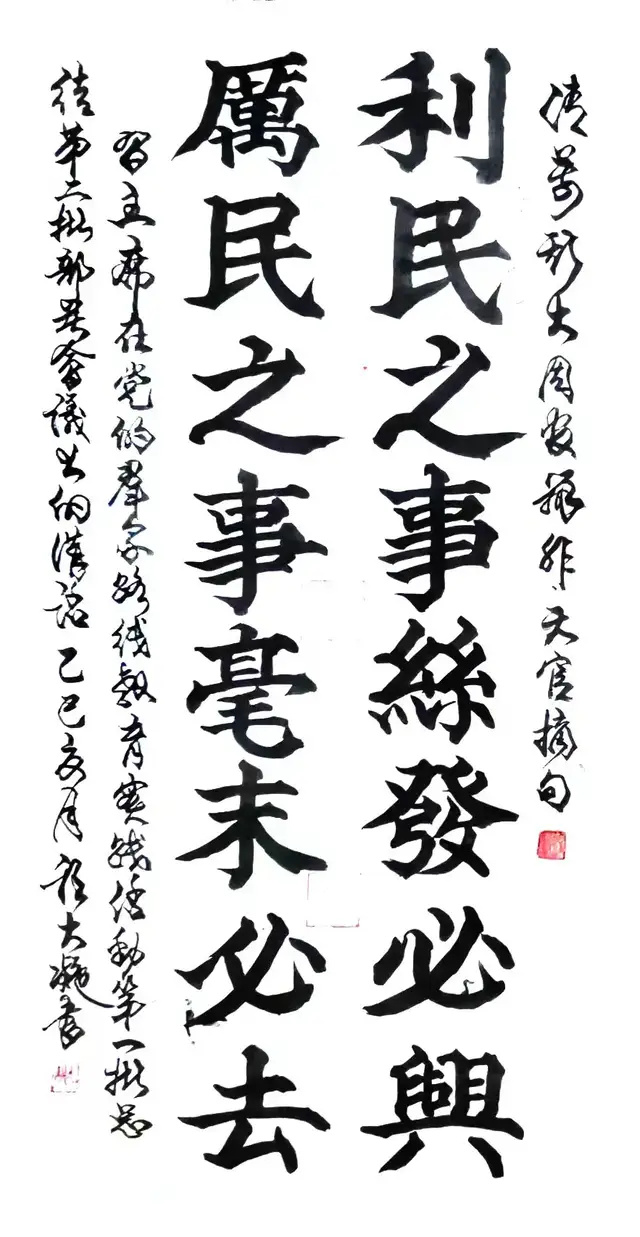 清萬斯大周官辨非天官摘句
利民之事絲發必興
厲民之事毫末必去
習主席在党的羣众路线教育實践活動第一批总
结第二批部署會議上的講話乙巳亥月大書